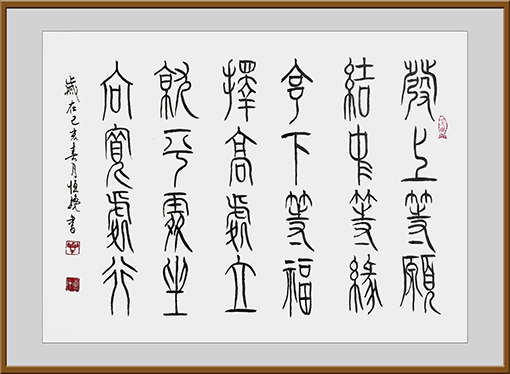 發上等願
結中等緣
享下等福
擇高處立
就平處坐
向寬處行
歲在己亥春月恒書